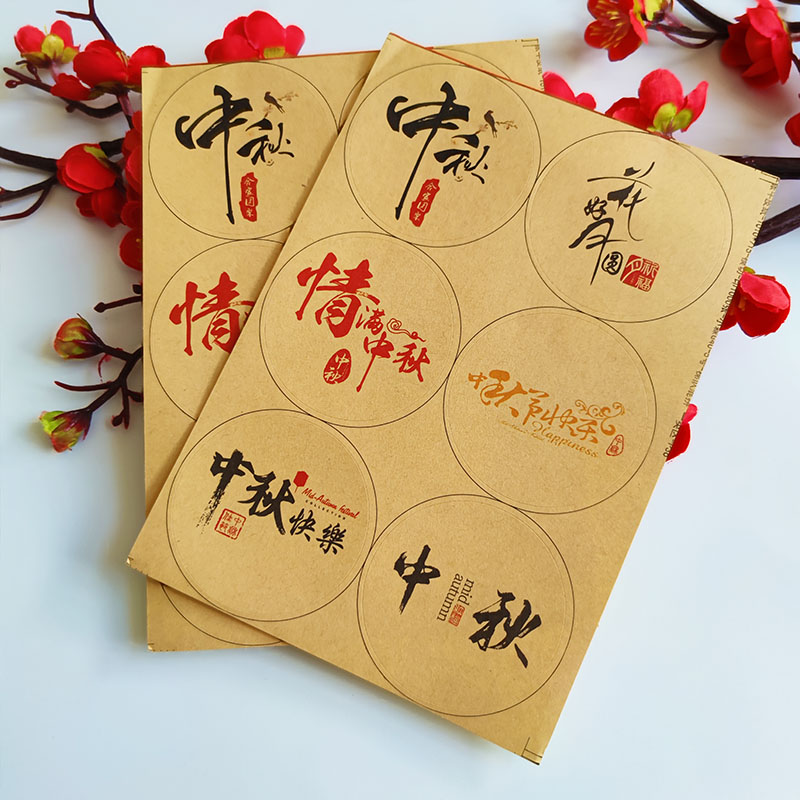 中秋
合家团圆
情
中秋
合家团圆
花好月圆
祈福
情满中秋
中秋
中秋节快乐
Happiness
中秋快樂
Mid-Autumn Festival
COLLECTION
中秋
mid
autumn